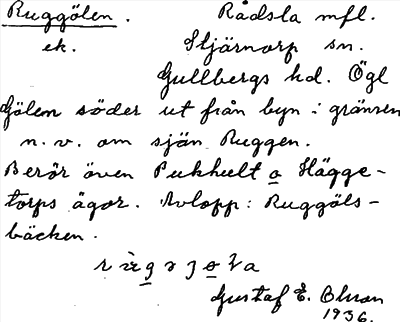 Ruggölen. Rådsla mfl.
ek. Stjärnorp sn.
Gullbergs hd. Ögl
Gölen söder ut från byn i gränsen
n. v. om sjön Ruggen.
Berör även Pukhult o Hägge-
torps ägor. Avlopp: Ruggöls-
bäcken.
Gustaf E. Olsson
1936.